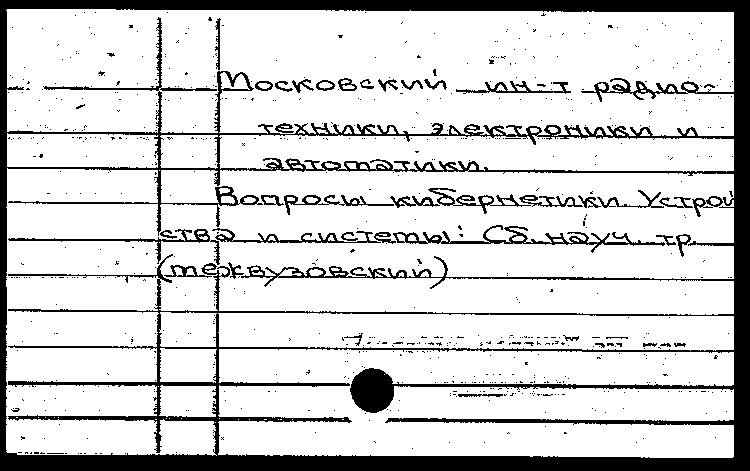 Московский ин-т радио-
техники, электроники и
автоматики.
Вопросы кибернетики. Устрой
ства и системы: Сб. науч. тр.
(межвузовский)